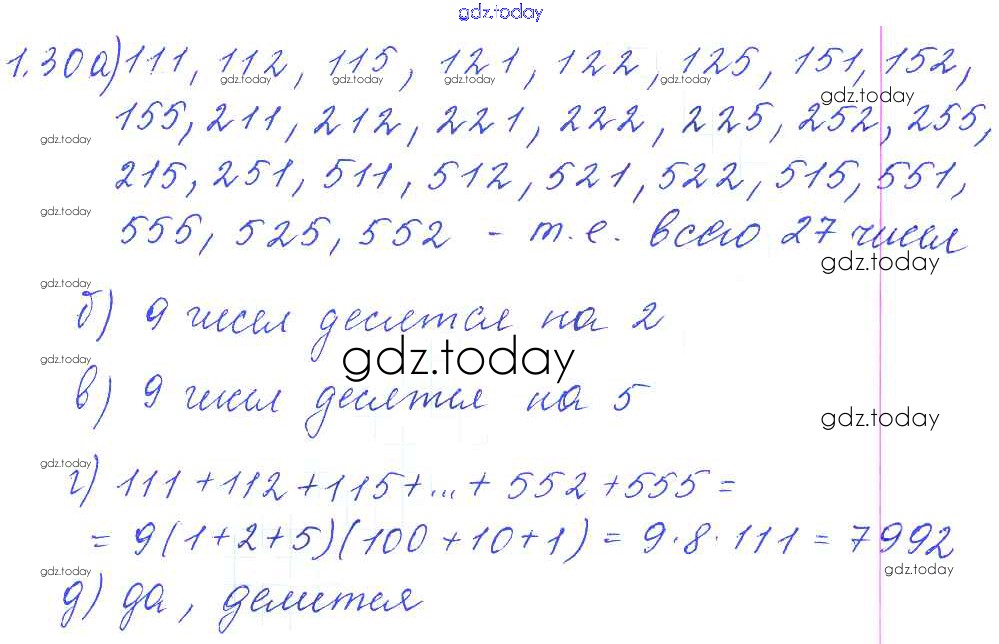 gdz.today
1.30 а) 111, 112, 115, 121, 122, 125, 151, 152,
gdz.today gdz.today gdz.today gdz.today
gdz.today
155, 211, 212, 221, 222, 225, 252, 255,
gdz.today
215, 251, 511, 512, 521, 522, 515, 551,
gdz.today
555, 525, 552 - т.е. всего 27 чисел
gdz.today
gdz.today
б) 9 чисел делятся на 2
gdz.today
gdz.today
в) 9 чисел делятся на 5
gdz.today
gdz.today
г) 111 + 112 + 115 + ... + 552 + 555 =
= 9(1+2+5)(100+10+1) = 9·8·111 = 7992
gdz.today
gdz.today
д) да, делится